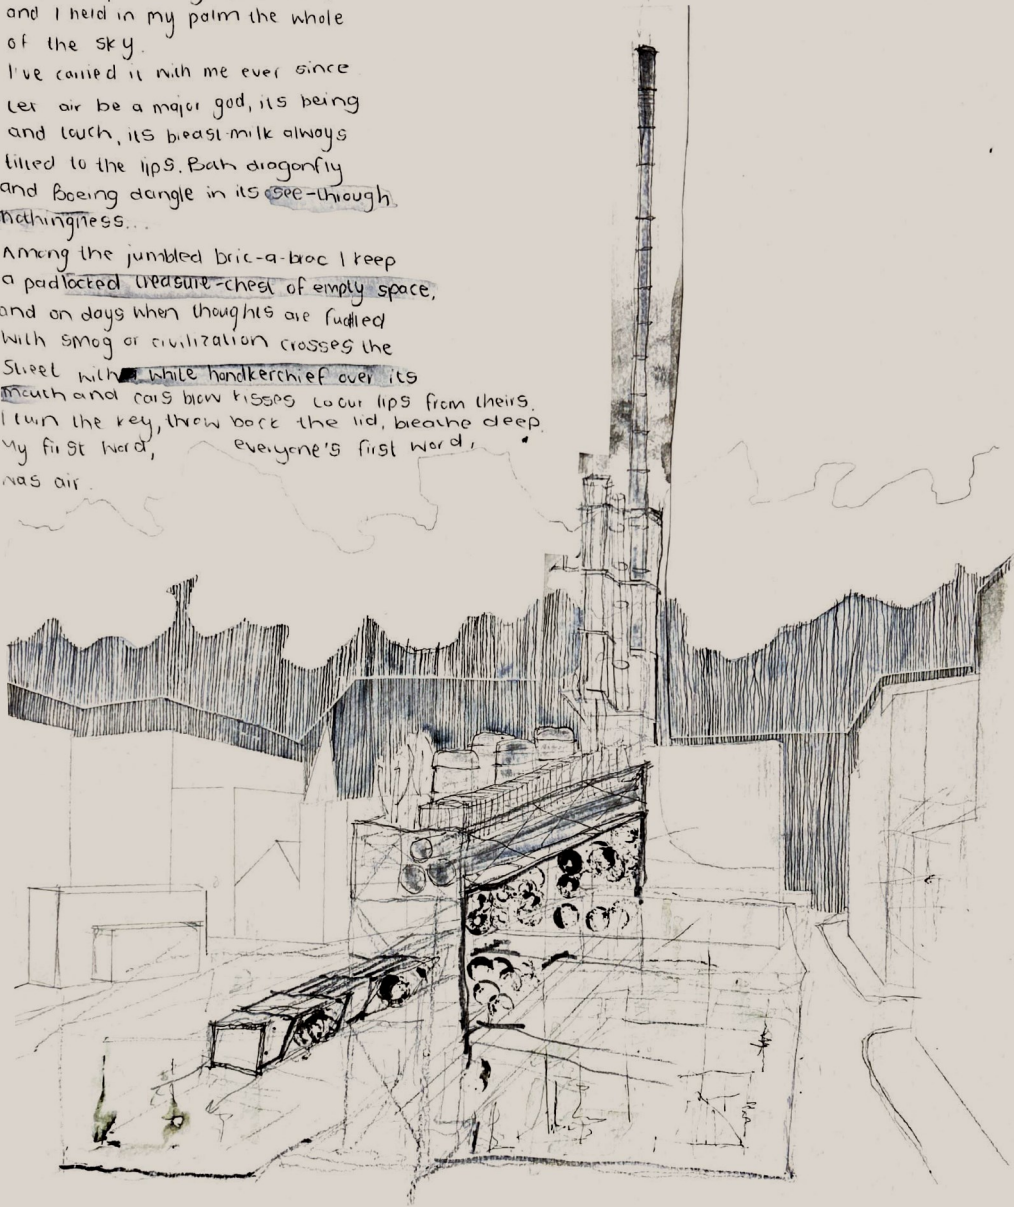 and I held in my palm the whole
of the sky.
I've carried it with me ever since
Let air be a major god, its being
and touch, its breast-milk always
tilted to the lips. Both dragonfly
and Boeing dangle in its see-through
nothingness...
Among the jumbled bric-a-brac I keep
a padlocked treasure-chest of empty space,
and on days when thoughts are fuddled
with smog or civilization crosses the
street with a white handkerchief over its
mouth and cars blow kisses to our lips from theirs.
I turn the key, throw back the lid, breathe deep.
My first word, everyone's first word,
was air.